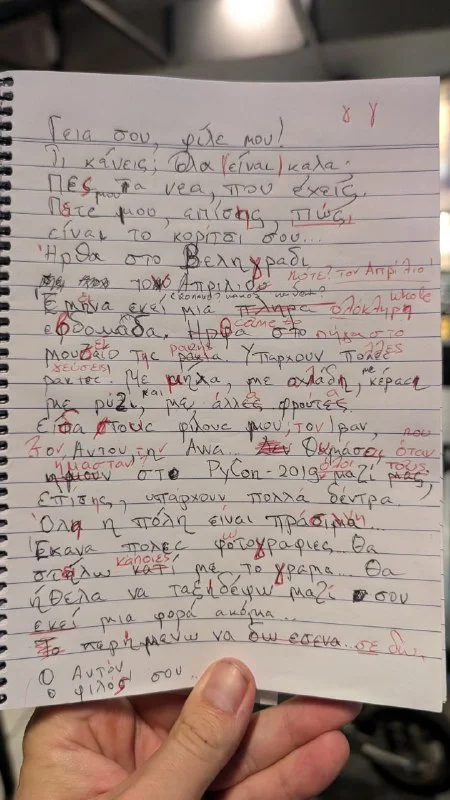 γ γ
Γεια σου, φίλε μου!
Τι κάνεις; Όλα (είναι) καλα.
Πές μου τα νέα, που έχεις.
Πέτε μου, επίσης, πώς
είναι το κορίτσι σου...
Ήρθα στο Βελιγράδι
πότε! τον Απρίλιο
Απρίλιο
Έμεινα εκεί μια ολόκληρη whole
εβδομάδα. Ήρθα came στο πήγα στο
μουσείο της ρακής ρακία. Υπάρχουν πολες
γεύσεις! άλλες
ρακιες. Με μήλα, με αχλάδη, με κέραση
με ρύζι, και με άλλες φρουτες.
Είδα τους φίλους μου, τον Ιβαν,
τον Αντον, την Αννα. Θυμάσαι, όταν
ήμασταν στο PyCon-2019 όλοι μαζί τους
Επίσης, υπάρχουν πολλά δέντρα.
Όλη η πόλη είναι πράσινη
Έκανα πολες φωτογραφιες... Θα
στείλω κάποιες με το γραμα... Θα
ήθελα να ταξιδέψω μαζί σου
εκεί μια φορά ακόμα...
περημενω να δω εσενα... σε δω,
Ο Αντόν
ο φίλος σου...